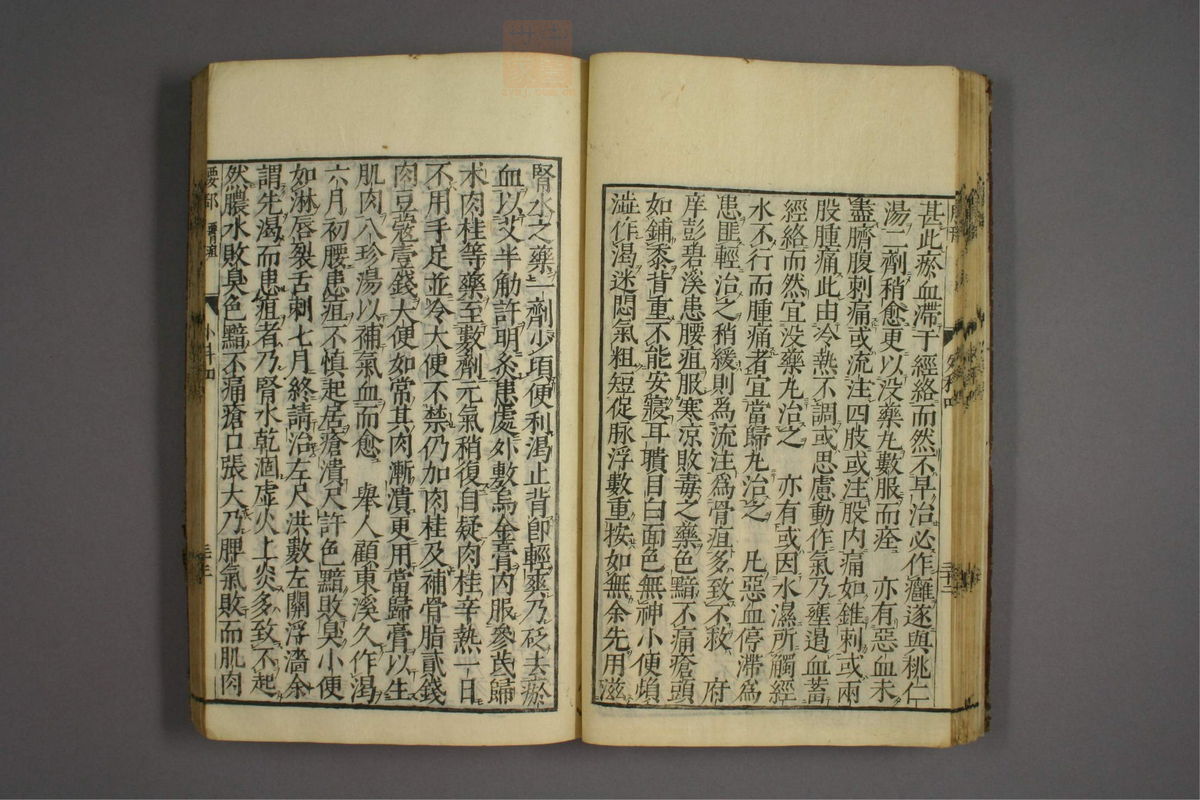 甚此瘀血滯于經絡而然不早治必作癰遂與桃仁
湯二劑稍愈更以没藥丸數服而痊　亦有惡血未
盡臍腹刺痛或流注四肢或注股内痛如錐刺或兩
股腫痛此由冷熱不調或思慮動作氣乃壅遏血蓄
經絡而然宜没藥丸治之　亦有或因水濕所觸經
水不行而腫痛者宜當歸丸治之　凡惡血停滯爲
患匪輕治之稍緩則爲流注爲骨疽多致不救　府
庠彭碧溪患腰疽服寒涼敗毒之藥色黯不痛瘡頭
如鋪黍背重不能安寢耳聵目白面色無神小便
澁作渴迷悶氣粗短促脉浮數重按如無余先用滋
腎水之藥一劑少頃便利渴止背卽輕爽乃砭去瘀
血以艾半觔許明灸患處外敷烏金膏内服參芪歸
术肉桂等藥至數劑元氣稍復自疑肉桂辛熱一日
不用手足並冷大便不禁仍加肉桂及補骨脂貳錢
肉豆蔻壹錢大便如常其肉漸潰更用當歸膏以生
肌肉八珍湯以補氣血而愈　舉人顧東溪久作渴
六月初腰患疽不慎起居瘡潰尺許色黯敗臭小便
如淋唇裂舌刺七月終請治左尺洪數左關浮濇余
謂先渴而患疽者乃腎水乾涸虛火上炎多致不起
然膿水敗臭色黯不痛瘡口張大乃脾氣敗而肌肉
腰部